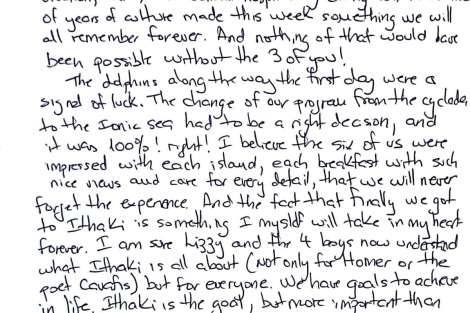 of years of culture made this week something we will
all remember forever. And nothing of that would have
been possible without the 3 of you!
The dolphins along the way the first day were a
signal of luck. The change of our program from the cyclades
to the Ionic sea had to be a right decison, and
it was 100%! right! I believe the six of us were
impressed with each island, each breakfast with such
nice views and care for every detail, that we will never
forget the experience. And the fact that finally we got
to Ithaki is something I myself will take in my heart
forever. I am sure Lizzy and the 4 boys now understand
what Ithaki is all about (not only for Homer or the
poet Cavafis) but for everyone. We have goals to achieve
in life. Ithaki is the goal, but more important than